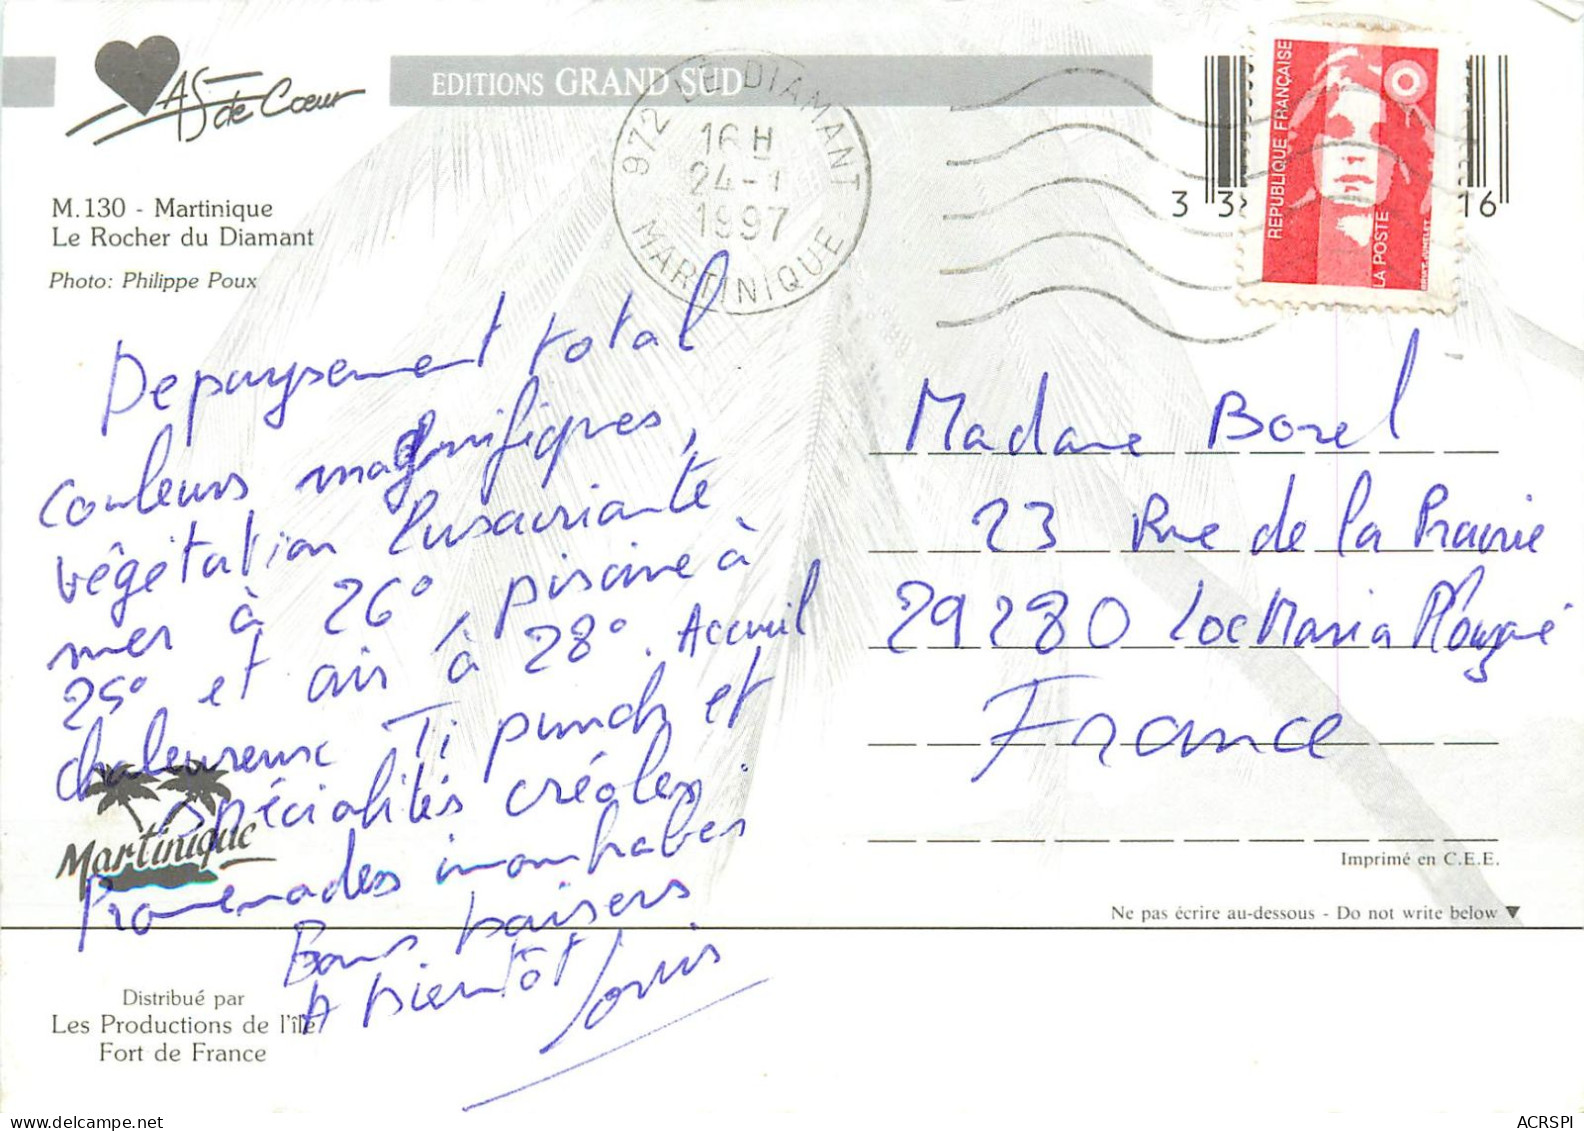 As de Cœur
EDITIONS GRAND SUD
972 LE DIAMANT
16 H
24-1
1997
MARTINIQUE
REPUBLIQUE FRANÇAISE
LA POSTE
3 3
16
M.130 - Martinique
Le Rocher du Diamant
Photo: Philippe Poux
Depaysement total
couleurs magnifiques,
végétation luxuriante
mer à 26°, piscine à
25° et air à 28°. Accueil
chaleureux Ti punch et
spécialités créoles.
Promenades innombrables
Bons baisers
A bientôt Louis
Madame Borel
23 Rue de la Prairie
29280 LocMaria Plouzané
France
Martinique
Imprimé en C.E.E.
Ne pas écrire au-dessous - Do not write below ▼
Distribué par
Les Productions de l'île
Fort de France
ACRSPI